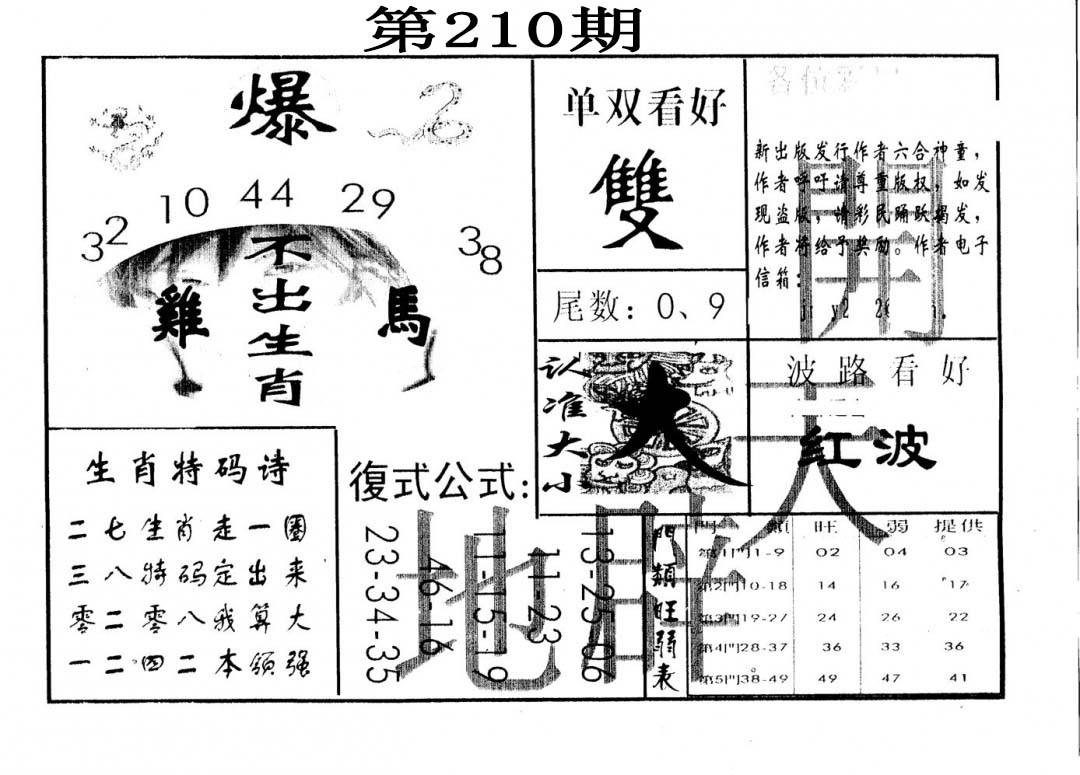 第210期
爆
32 10 44 29 38
不出生肖
雞 馬
单双看好
雙
尾数：0、9
新出版发行作者六合神童，
作者呼吁请尊重版权，如发
现盗版，请彩民踊跃揭发，
作者将给予奖励。作者电子
信箱：
開
认准大小
大
波路看好
紅波
天
生肖特码诗
二七生肖走一圈
三八特码定出来
零二零八我算大
一二四二本领强
復式公式:
23-34-35
46-16
11-15-19
11-23
13-25-06
地
門類旺弱表
門類 旺 弱 提供
第1门1-9 02 04 03
第2门10-18 14 16 17
第3门19-27 24 26 22
第4门28-37 36 33 36
第5门38-49 49 47 41